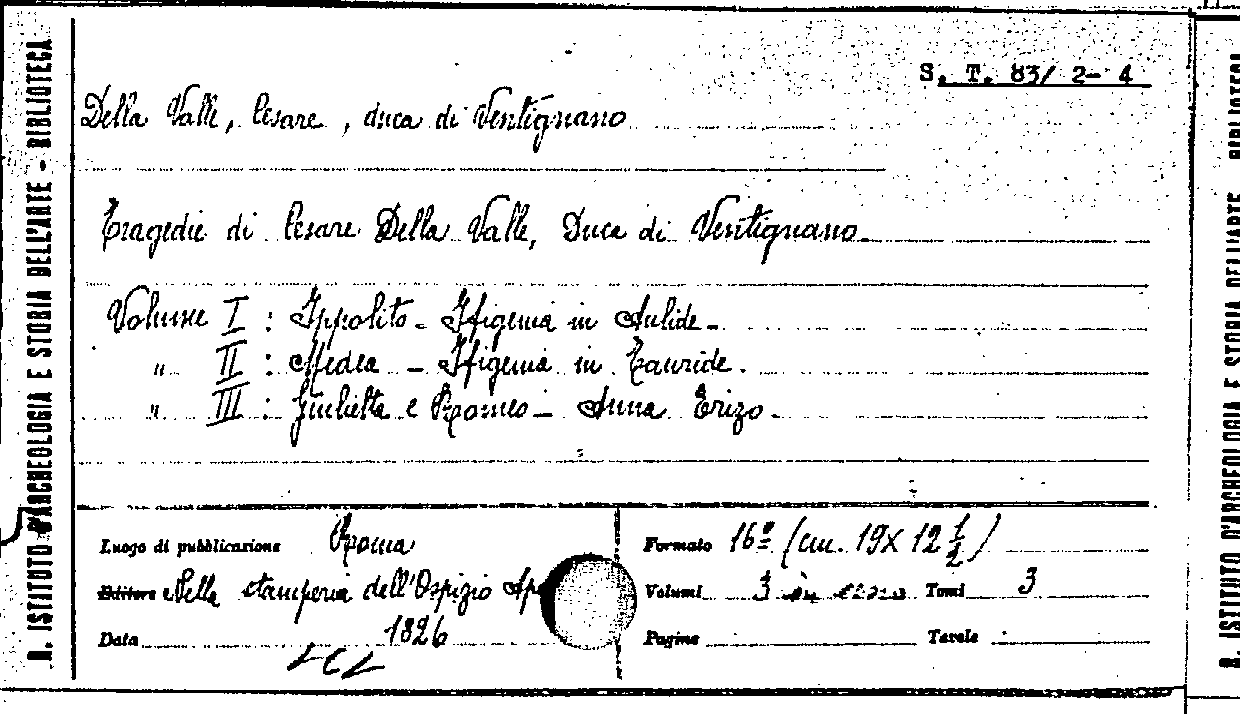 S. T. 83/ 2- 4
Della Valle, Cesare, duca di Ventignano
Tragedie di Cesare Della Valle, Duca di Ventignano
Volume I : Ippolito - Ifigenia in Aulide -
" II : Medea - Ifigenia in Tauride.
" III : Giulietta e Romeo - Anna Erizo -
Luogo di pubblicazione Roma
Editore Nella stamperia dell'Ospizio
Data 1826
Formato 16º (cm. 19 X 12 1/2)
Volumi 3 Tomi 3
Pagine Tavole
R. ISTITUTO D'ARCHEOLOGIA E STORIA DELL'ARTE - BIBLIOTECA
R. ISTITUTO D'ARCHEOLOGIA E STORIA DELL'ARTE BIBLIOTECA